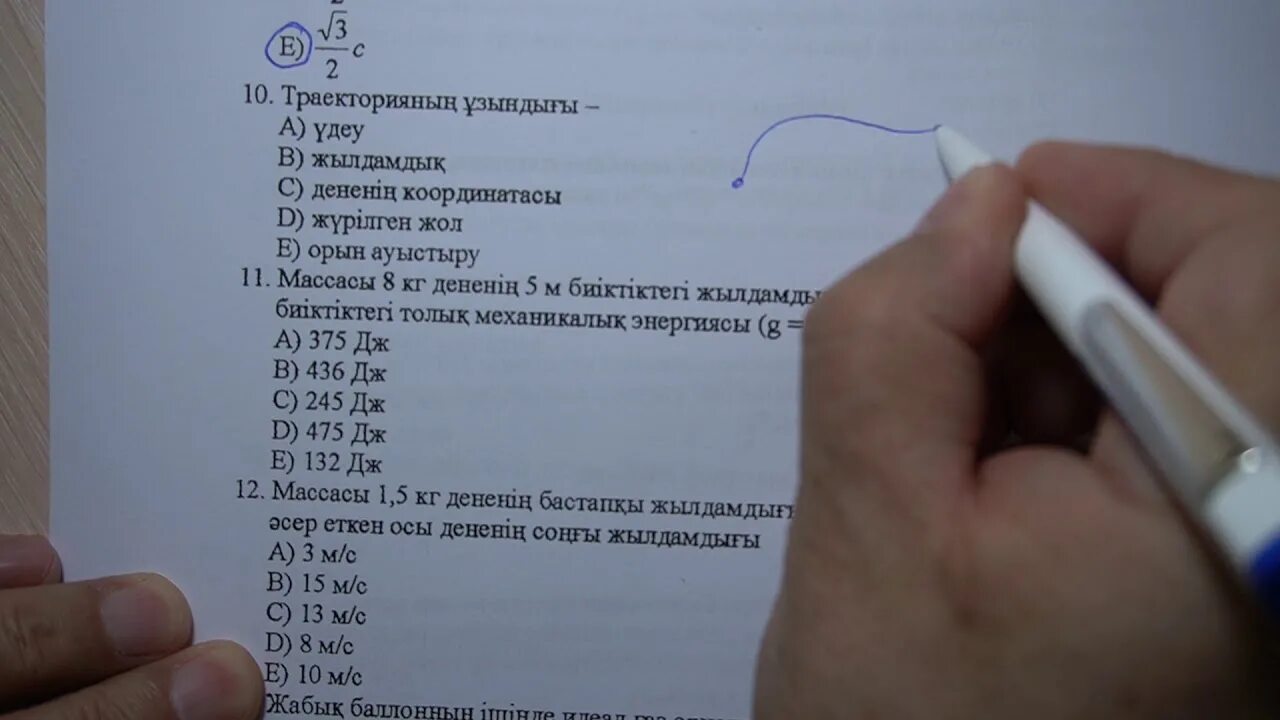 E) √3/2 с
10. Траекторияның ұзындығы –
A) үдеу
B) жылдамдық
C) дененің координатасы
D) жүрілген жол
E) орын ауыстыру
11. Массасы 8 кг дененің 5 м биіктіктегі
биіктіктегі толық механикалық энергиясы (g =
A) 375 Дж
B) 436 Дж
C) 245 Дж
D) 475 Дж
E) 132 Дж
12. Массасы 1,5 кг дененің бастапқы
әсер еткен осы дененің соңғы жылдамдығы
A) 3 м/с
B) 15 м/с
C) 13 м/с
D) 8 м/с
E) 10 м/с
Жабық баллонның ішінде идеал газ